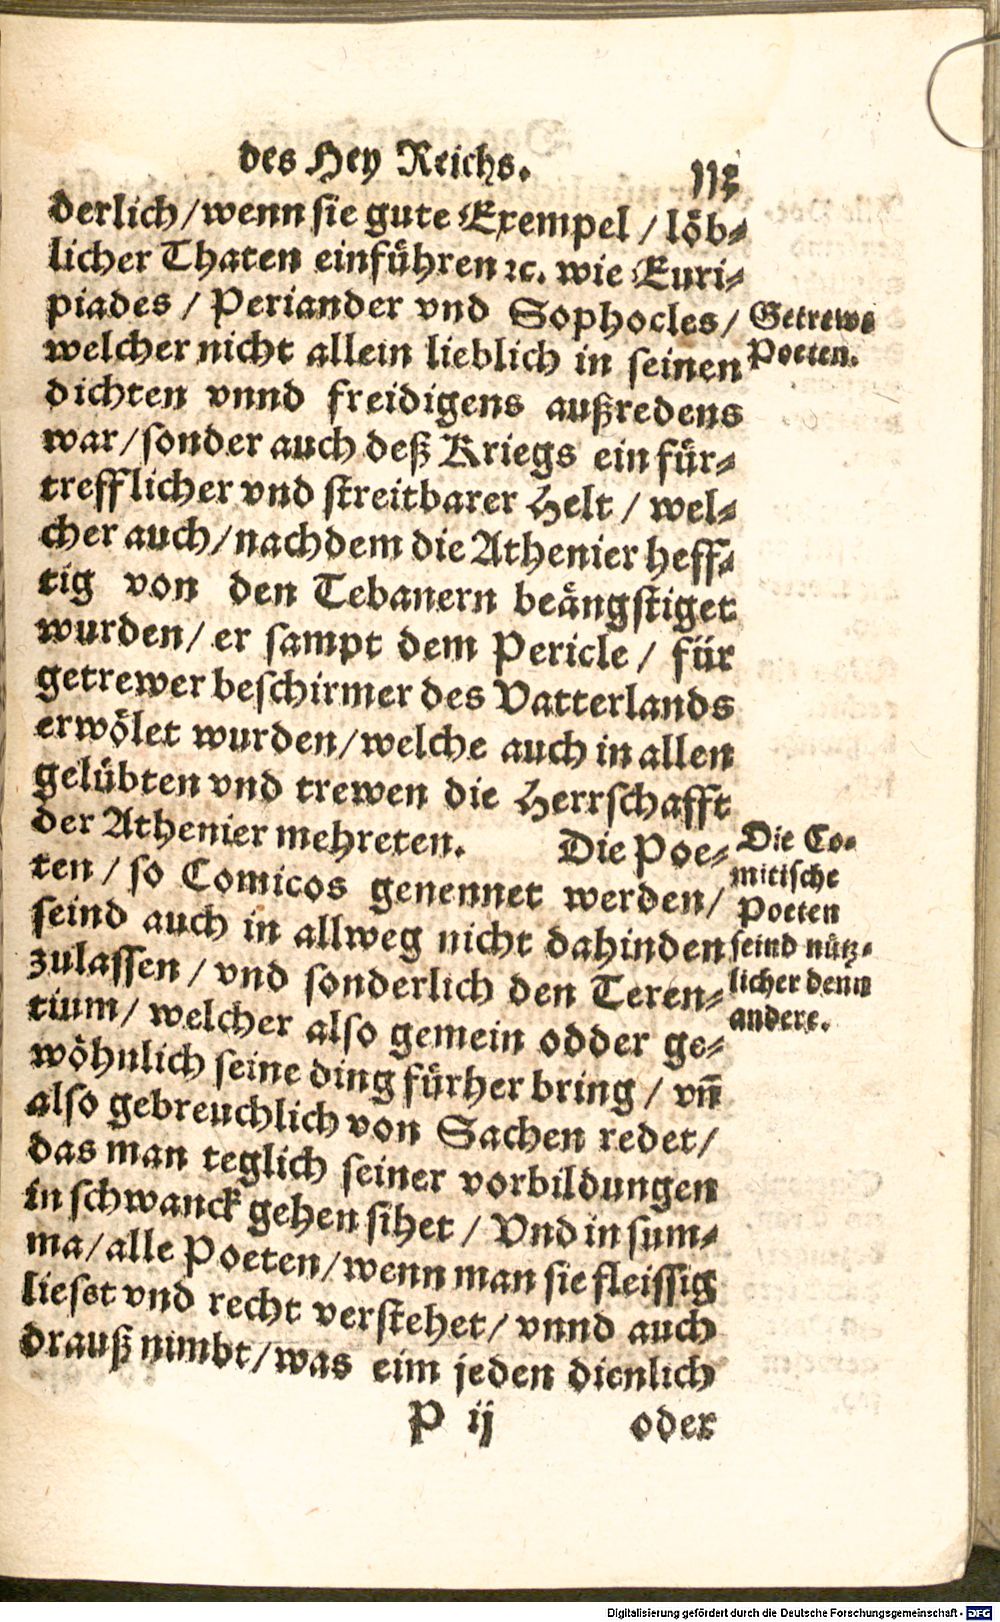 des Hey Reichs.
derlich/wenn sie gute Exempel / löb⸗
licher Thaten einführen ꝛc. wie Euri⸗
piades / Periander vnd Sophocles/
welcher nicht allein lieblich in seinen
dichten vnnd freidigens außredens
war/sonder auch deß Kriegs ein für⸗
trefflicher vnd streitbarer Helt / wel⸗
cher auch/nachdem die Athenier heff⸗
tig von den Tebanern beängstiget
wurden/ er sampt dem Pericle / für
getrewer beschirmer des Vatterlands
erwölet wurden/welche auch in allen
gelübten vnd trewen die Herrschafft
der Athenier mehreten. Die Poe⸗
ten / so Comicos genennet werden/
seind auch in allweg nicht dahinden
zulassen / vnd sonderlich den Teren⸗
tium/ welcher also gemein odder ge⸗
wöhnlich seine ding fürher bring / vñ
also gebreuchlich von Sachen redet/
das man teglich seiner vorbildungen
in schwanck gehen sihet / Vnd in sum⸗
ma/alle Poeten/wenn man sie fleissig
lieset vnd recht verstehet/ vnnd auch
drauß nimbt/was eim jeden dienlich
P ij oder
Getrewe
Poeten.
Die Co⸗
mitische
Poeten
seind nütz⸗
licher denn
andere.
Digitalisierung gefördert durch die Deutsche Forschungsgemeinschaft - DFG